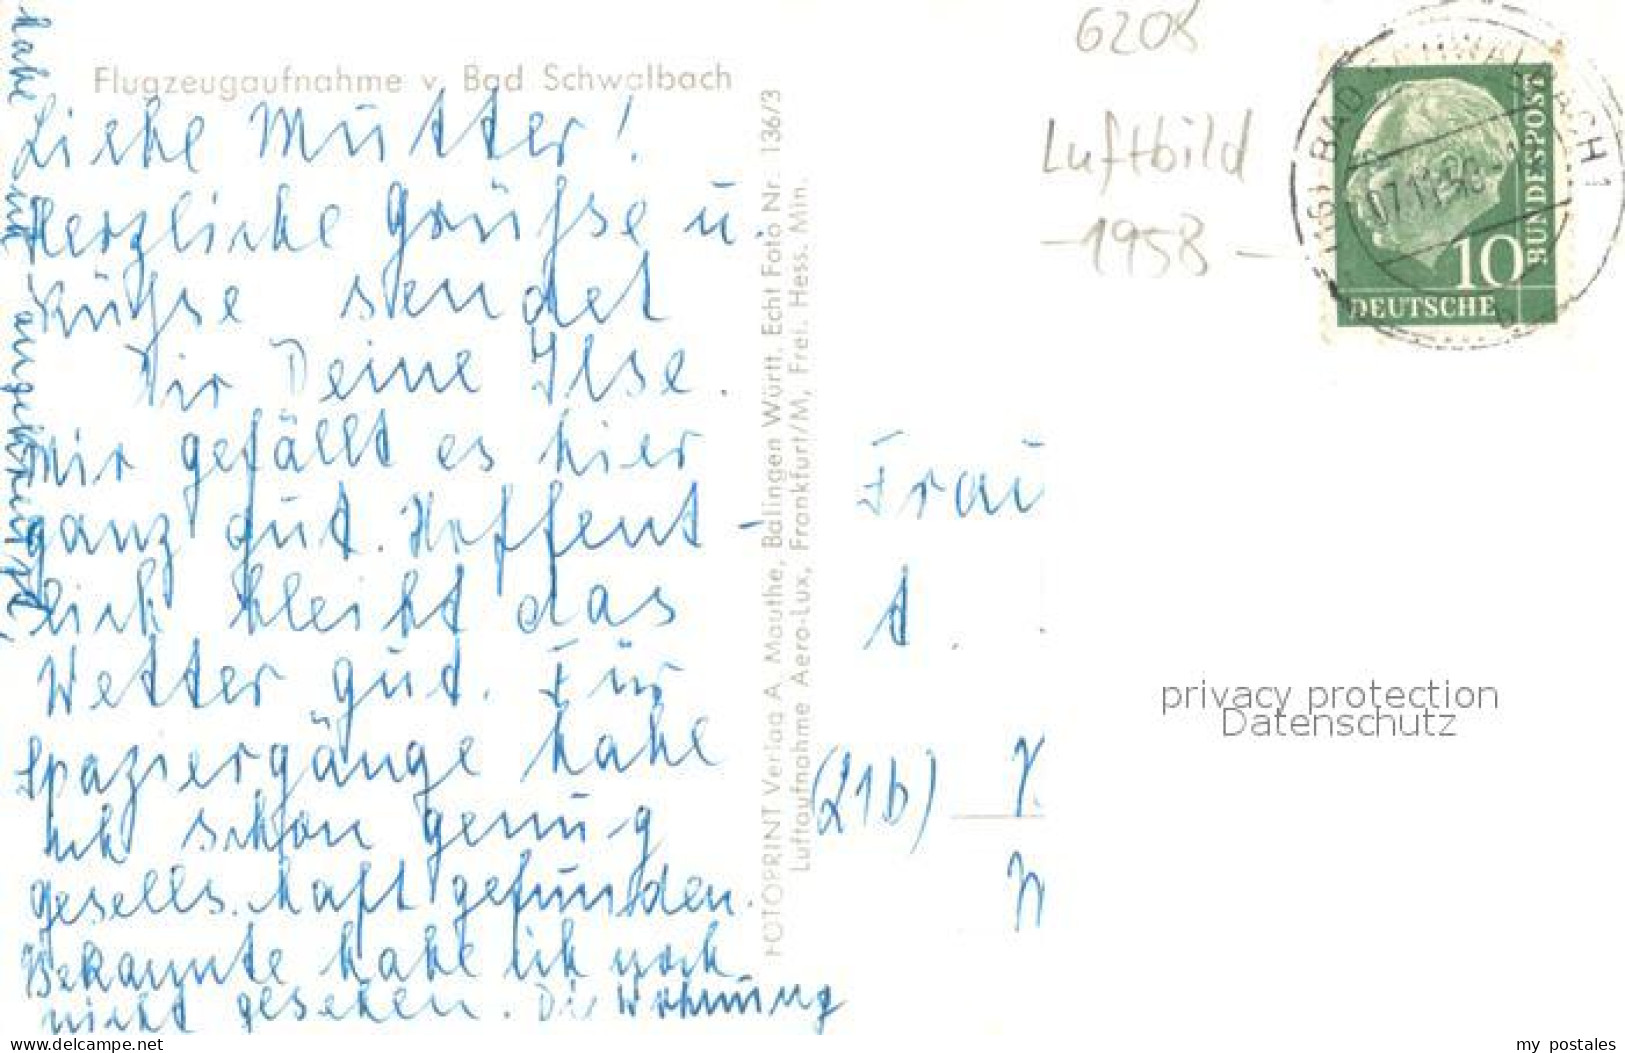 Flugzeugaufnahme v. Bad Schwalbach
Liebe Mutter!
Herzliche Grüße u.
Küße sendet
Dir Deine Ilse.
Mir gefällt es hier
ganz gut. Hoffent-
lich bleibt das
Wetter gut. Für
Spaziergänge habe
ich schon genug
Gesellschaft gefunden.
Bekannte habe ich noch
nicht gesehen. Die Wohnung
habe ich angekreuzt,
FOTOPRINT Verlag A. Mauthe, Balingen Württ. Echt Foto Nr. 136/3
Luftaufnahme Aero-Lux, Frankfurt/M, Frei. Hess. Min.
6208
Luftbild
-1958-
(16) BAD SCHWALBACH 1
07.11.58
10
DEUTSCHE
BUNDESPOST
Frau
(21b)
privacy protection
Datenschutz
delcampe.net
my_postales